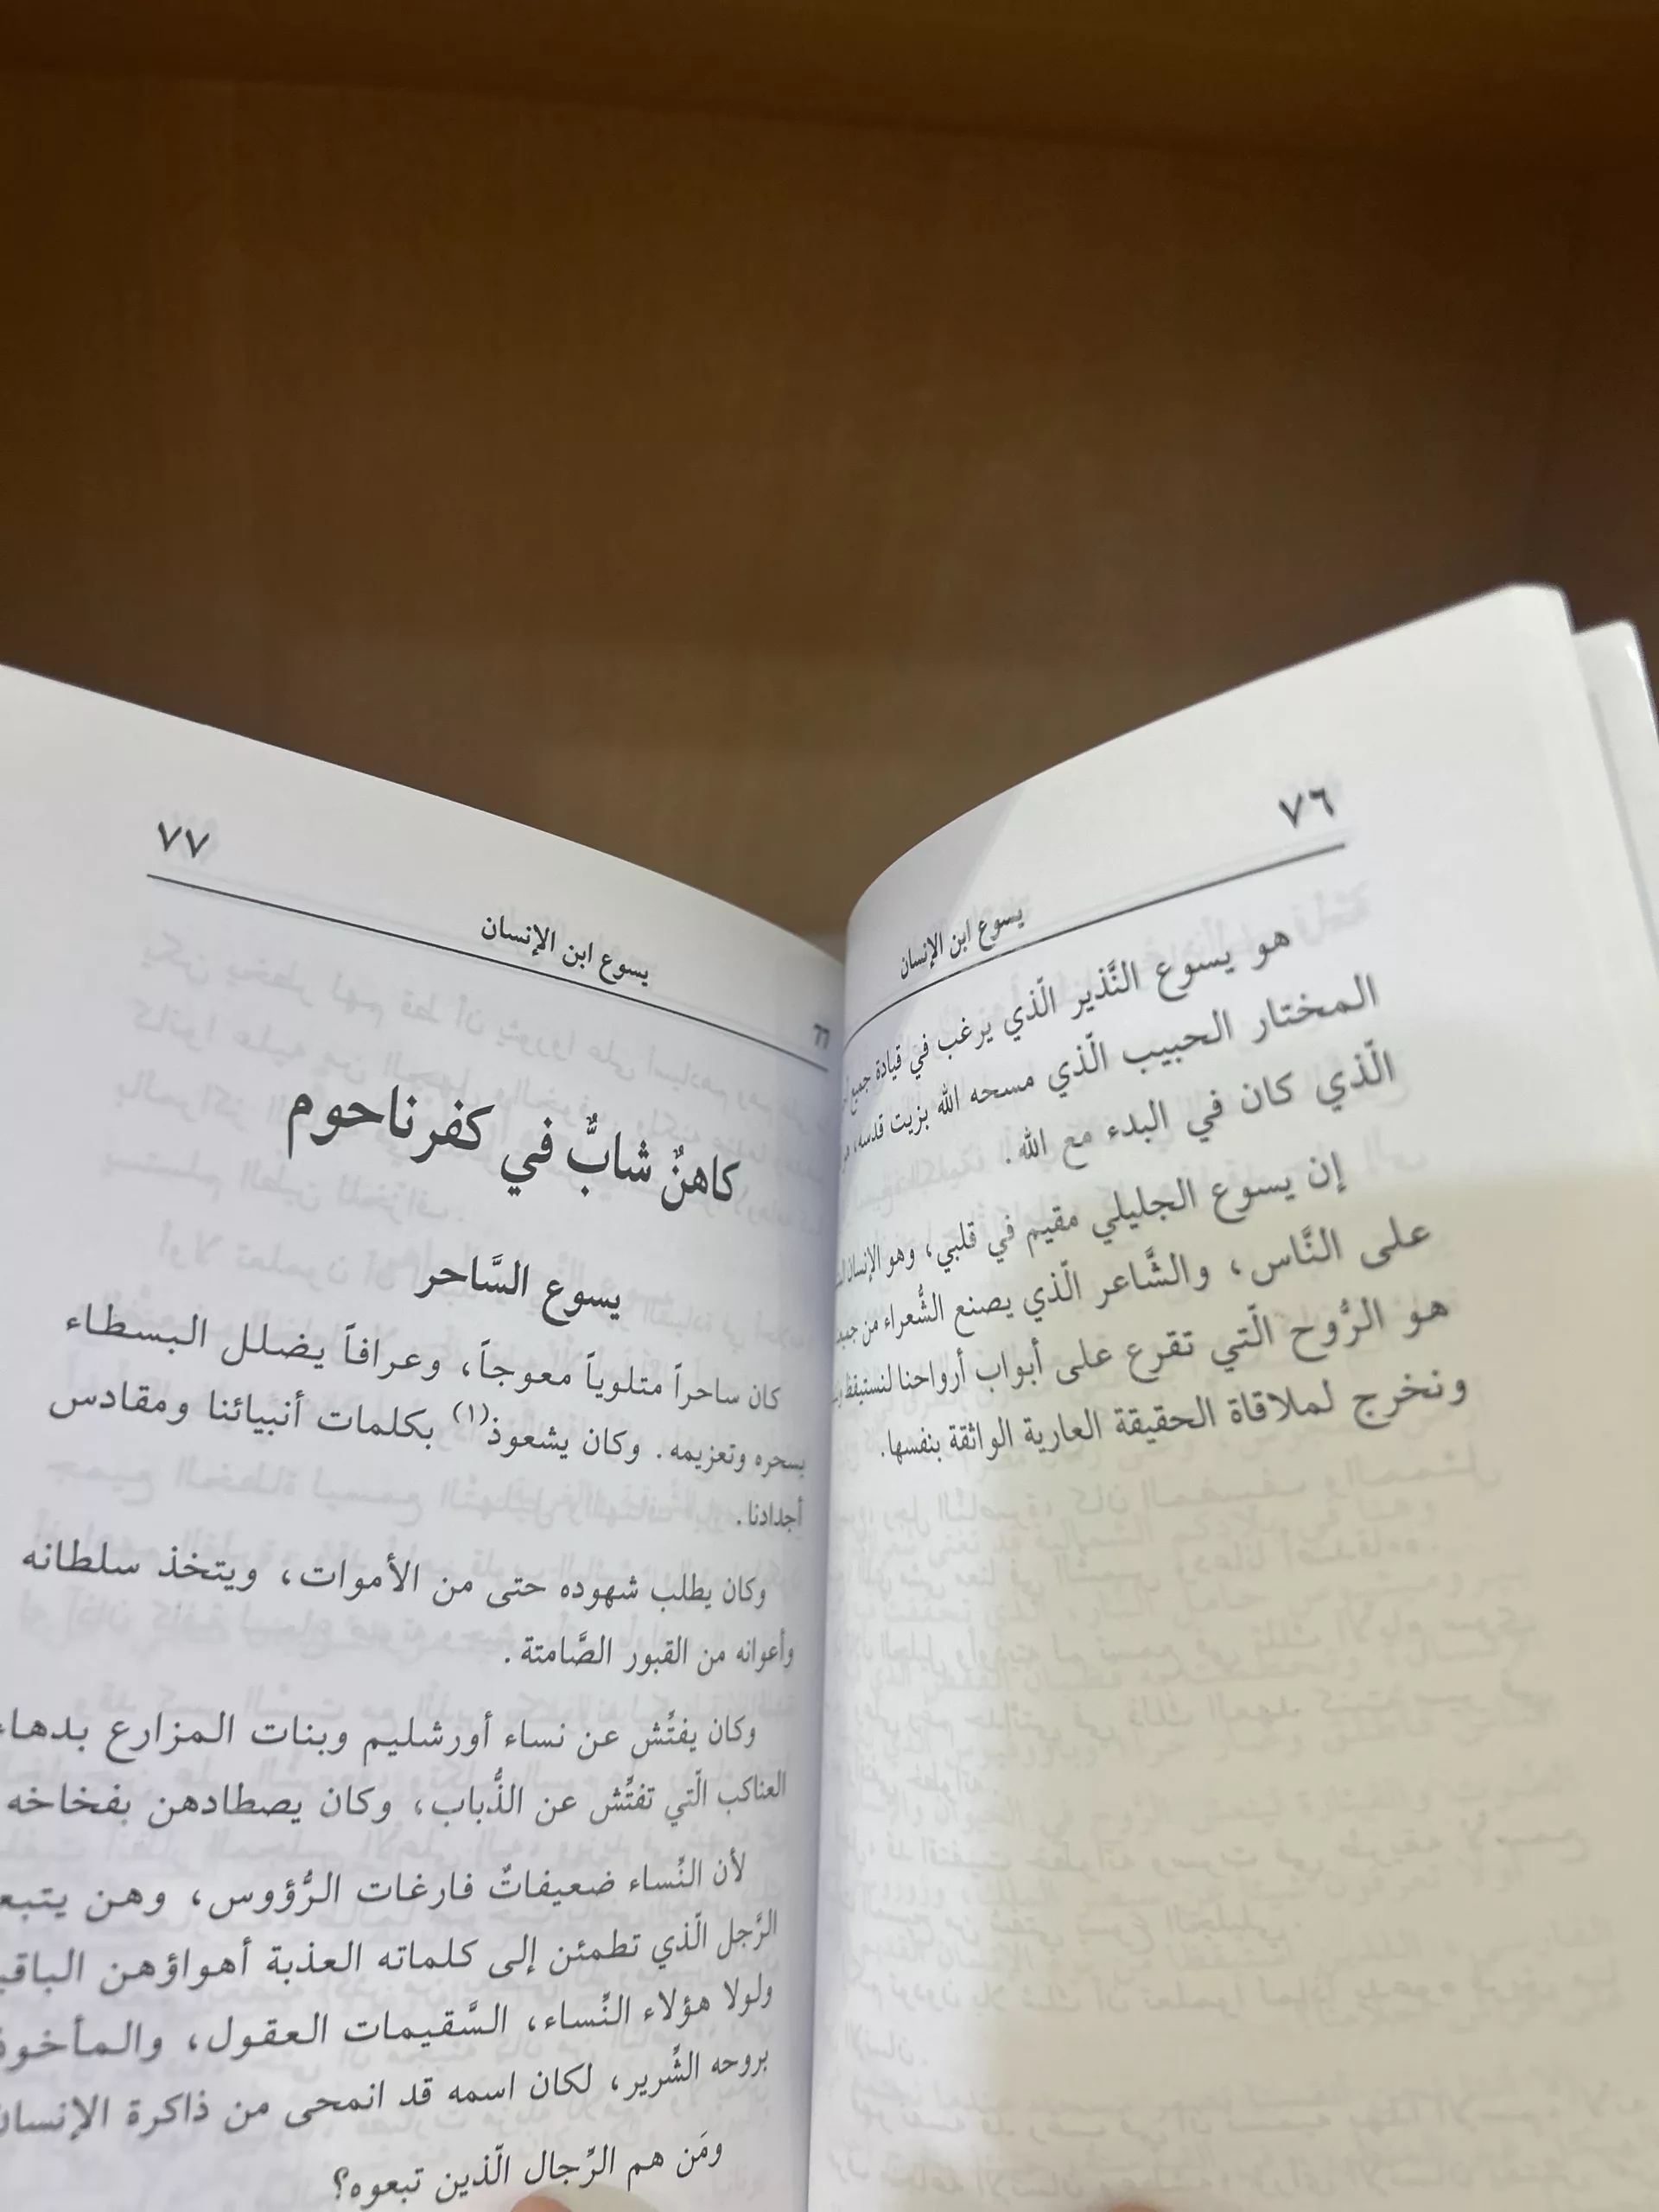 ٧٦
يسوع ابن الإنسان
هو يسوع النَّذير الّذي يرغب في قيادة جميع
المختار الحبيب الّذي مسحه الله بزيت قدسه،
الّذي كان في البدء مع الله.
إن يسوع الجليلي مقيم في قلبي، وهو الإنسان
على النَّاس، والشَّاعر الّذي يصنع الشُّعراء من
هو الرُّوح الّتي تقرع على أبواب أرواحنا لنستيقظ
ونخرج لملاقاة الحقيقة العارية الواثقة بنفسها.
٧٧
يسوع ابن الإنسان
كاهنٌ شابٌّ في كفرناحوم
يسوع السَّاحر
كان ساحراً متلوياً معوجاً، وعرافاً يضلل البسطاء
بسحره وتعزيمه. وكان يشعوذ(١) بكلمات أنبيائنا ومقادس
أجدادنا.
وكان يطلب شهوده حتى من الأموات، ويتخذ سلطانه
وأعوانه من القبور الصَّامتة.
وكان يفتِّش عن نساء أورشليم وبنات المزارع بدهاء
العناكب الّتي تفتِّش عن الذُّباب، وكان يصطادهن بفخاخه
لأن النِّساء ضعيفاتٌ فارغات الرُّؤوس، وهن
الرَّجل الّذي تطمئن إلى كلماته العذبة أهواؤهن
ولولا هؤلاء النِّساء، السَّقيمات العقول،
بروحه الشِّرير، لكان اسمه قد انمحى من ذاكرة الإنسان
ومَن هم الرِّجال الّذين تبعوه؟